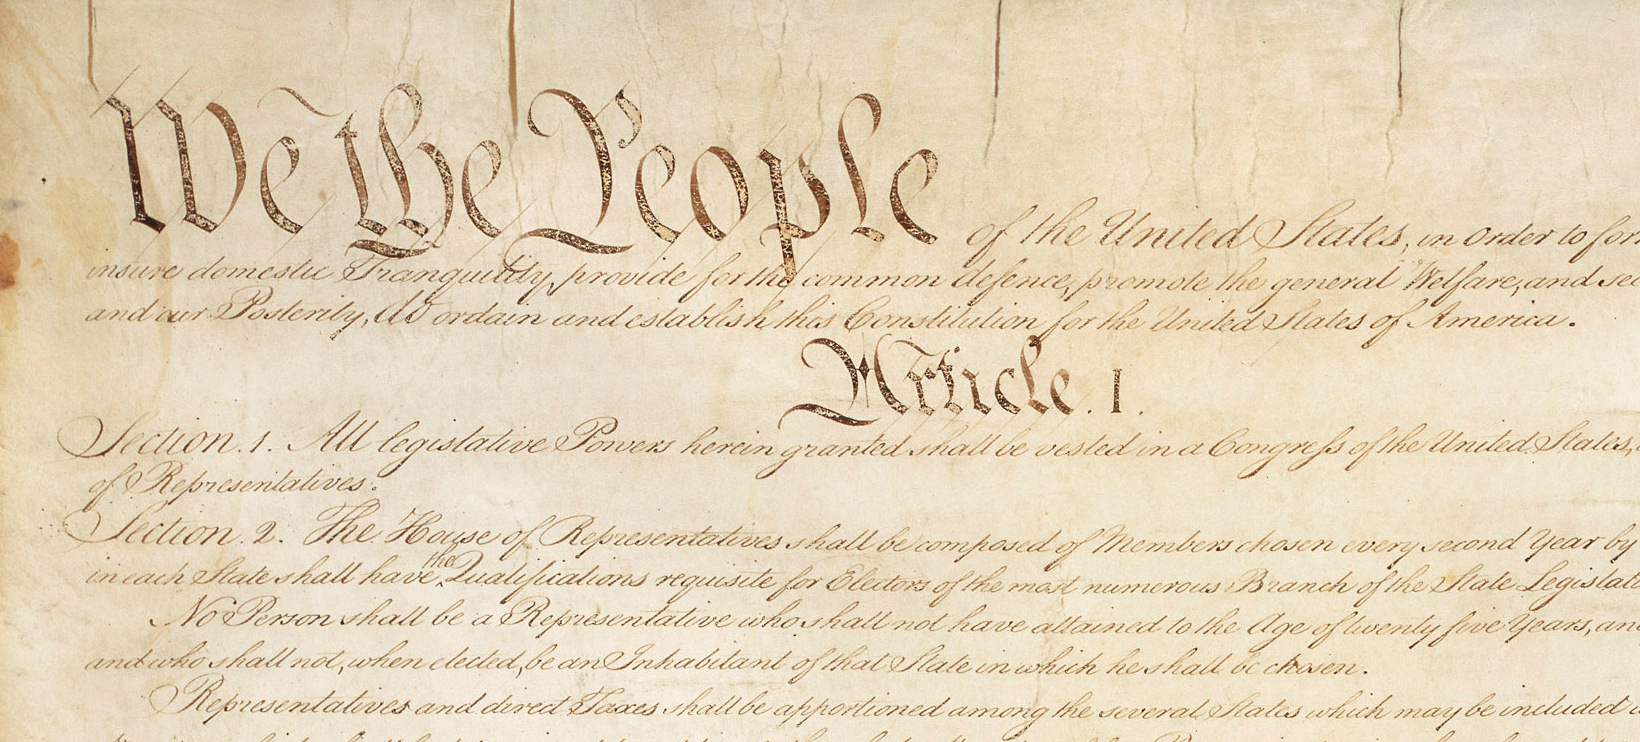 We the People of the United States, in Order to for
insure domestic Tranquility, provide for the common defence, promote the general Welfare, and sec
and our Posterity, do ordain and establish this Constitution for the United States of America.
Article. I.
Section. 1. All legislative Powers herein granted shall be vested in a Congress of the United States,
of Representatives.
Section. 2. The House of Representatives shall be composed of Members chosen every second Year by
in each State shall have the Qualifications requisite for Electors of the most numerous Branch of the State Legislat
No Person shall be a Representative who shall not have attained to the Age of twenty five Years, an
and who shall not, when elected, be an Inhabitant of that State in which he shall be chosen.
Representatives and direct Taxes shall be apportioned among the several States which may be included